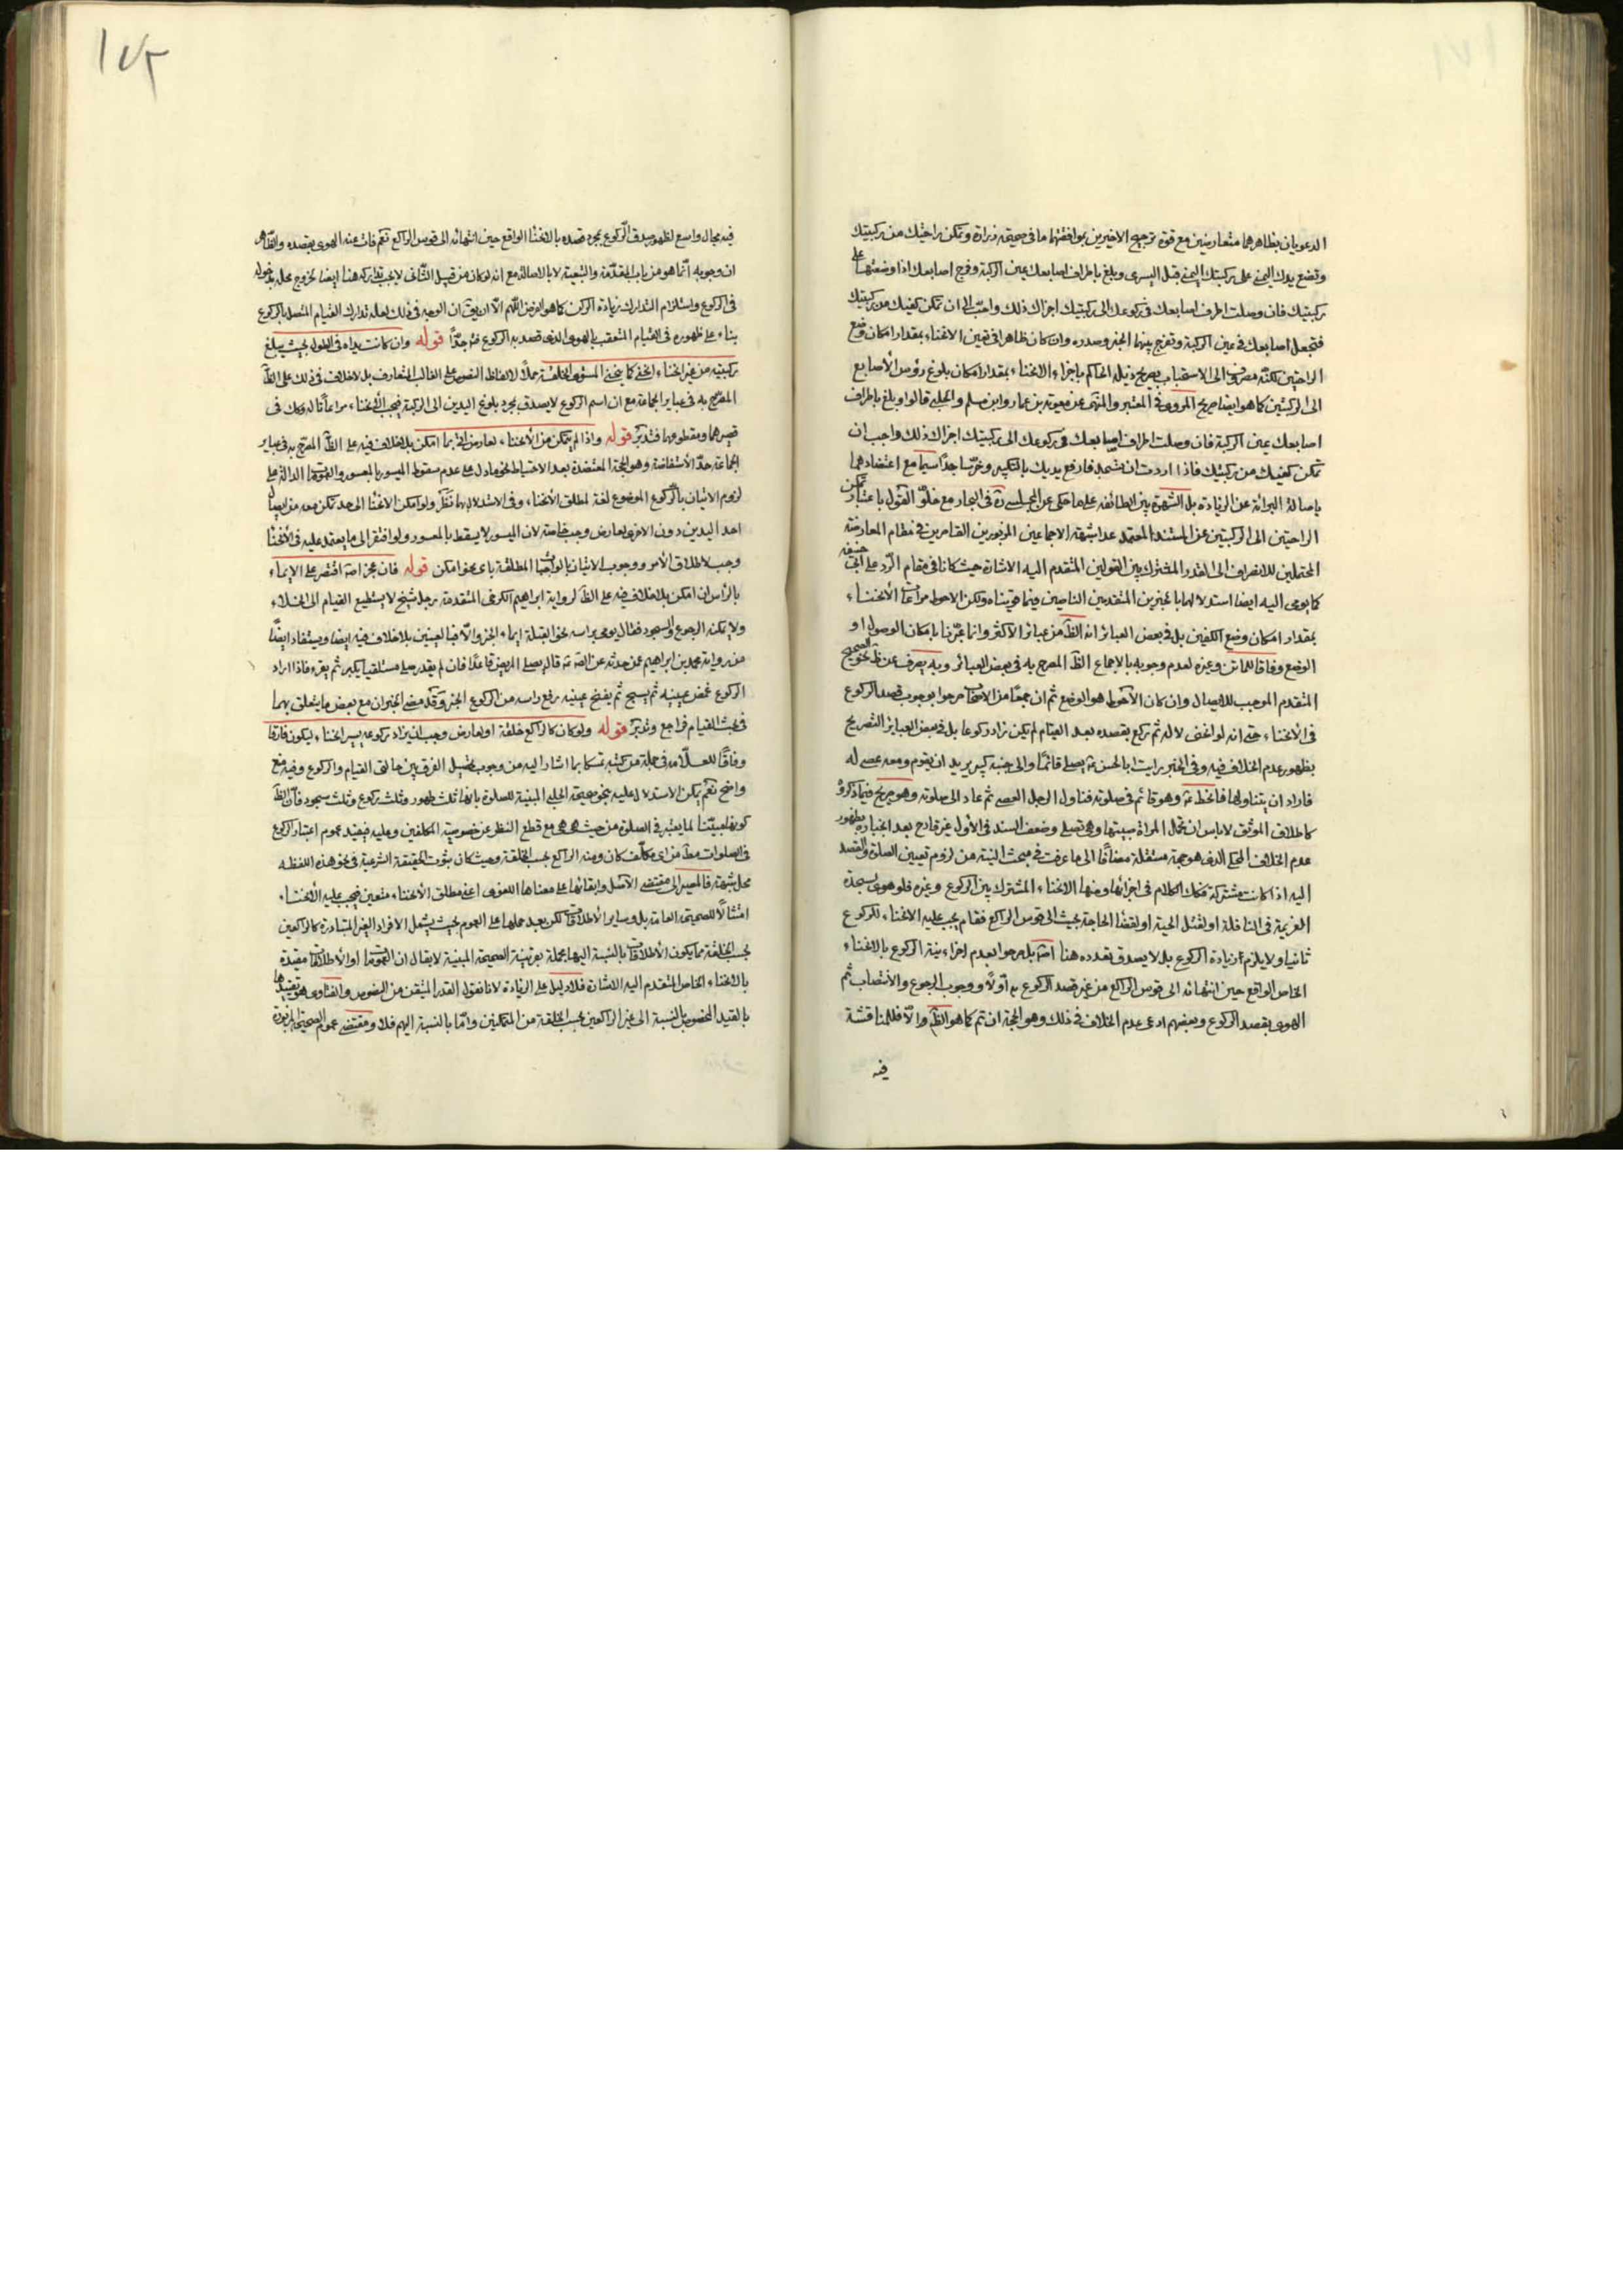 الدعويان بظاهرهما متعارضين مع قوة ترجيح الاخيرين بموافقتهما ما في صحيحة زرارة وتمكن راحتيك من ركبتيك
وتضع يدك اليمنى على ركبتيك اليمنى قبل اليسرى وبلغ باطراف اصابعك عين الركبة وفرج اصابعك اذا وضعتها على
ركبتيك فان وصلت اطراف اصابعك في ركوعك الى ركبتيك اجزاك ذلك واحب الى ان تمكن كفيك من ركبتيك
فتجعل اصابعك في عين الركبة وتفرج بينهما الخبر وصدره وان كان ظاهرا في تعين الانحناء بمقدار امكان وضع
الراحتين لكنه مصروف الى الاستحباب بصريح ذيله الحاكم باجزاء الانحناء بمقدار امكان بلوغ رؤس الأصابع
الى الركبتين كما هو ايضا صريح المروى في المعتبر والمنتهى عن معوية بن عمار وابن مسلم والحلبى قالوا وبلغ باطراف
اصابعك عين الركبة فان وصلت اطراف اصابعك في ركوعك الى ركبتيك اجزاك ذلك واحب ان
تمكن كفيك من ركبتيك فاذا اردت ان تسجد فارفع يديك بالتكبير وخر ساجدا سيما مع اعتضادهما
باصالة البرائة عن الزيادة بل الشهرة بين الطائفة على ما حكى عن المجلسى ره في البحار مع خلو القول باعتبار تمكن
الراحتين الى الركبتين عن المستند المعتمد عدا شبهة الاجماعين المزبورين القاصرين في مقام المعارضة
المحتملين للانصراف الى القدر المشترك بين القولين المتقدم اليه الاشارة حيث كانا في مقام الرد على ابى حنيفة
كما يومى اليه ايضا استدلالهما بالخبرين المتقدمين الناصين فيما قويناه ولكن الاحوط مراعات الأنحناء
بمقدار امكان وضع الكفين بل في بعض العبائر انه الظ من عبائر الاكثر وانما عبرنا بامكان الوصول او
الوضع وفاقا للماتن وغيره لعدم وجوبه بالاجماع الظ المصرح به في بعض العبائر وبه يصرف عن ظ نحو الصحيح
المتقدم الموجب للايصال وان كان الأحوط هو الوضع ثم ان جمعًا من الاصحاب صرحوا بوجوب قصد الركوع
في الأنحناء حتى انه لو انحنى لا له ثم ركع بقصده بعد القيام لم يكن زاد ركوعا بل في بعض العبائر التصريح
بظهور عدم الخلاف فيه وفي الخبر رايت ابا الحسن ع يصلى قائمًا والى جنبه كبير يريد ان يقوم ومعه عصى له
فاراد ان يتناولها فانحط ع وهو قائم في صلوته فناول الرجل العصى ثم عاد الى صلوته وهو صريح فيما ذكروه
كاطلاق الموثق لا باس ان تحمل المراة صبيتها وهى تصلى وضعف السند في الأول غير قادح بعد انجباره بظهور
عدم الخلاف المحكى الذى هو حجة مستقلة مضافًا الى ما عرفت في مبحث النية من لزوم تعيين الصلوة والقصد
اليه اذا كانت مشتركة فكك الكلام في اجزائها ومنها الانحناء المشترك بين الركوع وغيره فلو هوى لسجدة
العزيمة في النافلة او لقتل الحية او لقضاء الحاجة بحيث الى قوس الراكع فقام يجب عليه الانحناء للركوع
ثانيا ولا يلزم زيادة الركوع بل لا يصدق تعدده هنا اصلا بل صرحوا بعدم اجزاء نية الركوع بالانحناء
الخاص الواقع حين انتهائه الى قوس الراكع من غير قصد الركوع به أولًا ووجوب الرجوع والأنتصاب ثم
الهوى بقصد الركوع وبعضهم ادعى عدم الخلاف في ذلك وهو الحجة ان تم كما هو الظ والا فللمناقشة
فيه
فيه مجال واسع لظهور صدق الركوع بمجرد قصده بالانحناء الواقع حين انتهائه الى قوس الراكع نعم فات عنه الهوى بقصده والظاهر
ان وجوبه انما هو من باب المقدمة والتبعية لا بالاصالة مع انه لو كان من قبيل الثانى لا يجب تداركه هنا ايضا لخروج محله بدخوله
في الركوع واستلزام التدارك زيادة الركن كما هو المفروض اللهم الا ان يق ان الوجه في ذلك لعله تدارك القيام المتصل بالركوع
بناء على ظهوره في القيام المتعقب بالهوى الذى قصد به الركوع فت جدًا قوله وان كانت يداه في الطول بحيث يبلغ
ركبتيه من غير انحناء انحنى كما ينحنى المستوى الخلقة حملًا لالفاظ النصوص على الغالب المتعارف بلا خلاف في ذلك على الظ
المصرح به في عبائر الجماعة مع ان اسم الركوع لا يصدق بمجرد بلوغ اليدين الى الركبة فيجب الأنحناء مراعاتًا له وكك في
قصيرهما ومقطوعهما فتدبر قوله واذا لم يتمكن من الأنحناء لعارض اتى بما امكن بلا خلاف فيه على الظ المصرح به في عباير
الجماعة حد الأستفاضة وهو الحجة المعتضدة بعد الاحتياط بنحو ما دل على عدم سقوط الميسور بالمعسور والعمومات الدالة على
لزوم الاتيان بالركوع الموضوع لغة لمطلق الأنحناء وفي الاستدلال بهما نظر ولو امكن الانحناء الى حد تمكن معه من ايصال
احد اليدين دون الاخرى لعارض وجب خاصة لان الميسور لا يسقط بالمعسور ولو افتقر الى ما يعتمد عليه في الأنحناء
وجب لاطلاق الأمر ووجوب الاتيان بالواجبات المطلقة باى نحو امكن قوله فان عجز اصلا اقتصر على الإيماء
بالرأس ان امكن بلا خلاف فيه على الظ لرواية ابراهيم الكرخى المتقدمة رجل شيخ لا يستطيع القيام الى الخلاء
ولا يمكنه الركوع والسجود فقال يومى براسه نحو القبلة ايماء الخبر والا فبالعينين بلا خلاف فيه ايضا ويستفاد ايضًا
من رواية محمد بن ابراهيم عمن حدثه عن الص ع قال يصلى المريض قاعدًا فان لم يقدر صلى مستلقيا يكبر ثم يقرء فاذا اراد
الركوع غمض عينيه ثم يسبح ثم يفتح عينيه رفع راسه من الركوع الخبر وقد مضى الخبران مع بعض ما يتعلق بهما
في بحث القيام فراجع وتدبر قوله ولو كان كالراكع خلقة او لعارض وجب ان يزاد ركوعه يسير انحناء ليكون فارقا
وفاقًا للعلامة في جملة من كتبه تمسكا بما اشار اليه من وجوب تحصيل الفرق بين حالتى القيام والركوع وفيه منع
واضح نعم يمكن الاستدلال عليه بنحو صحيحة الحلبى المبنية للصلوة بانها ثلث طهور وثلث ركوع وثلث سجود فان الظ
كونها مبينا لما يعتبر في الصلوة من حيث هى هى مع قطع النظر عن خصوصية المكلفين وعليه فيفيد عموم اعتبار الركوع
في الصلوات مط من اى مكلف كان ومنه الراكع بحسب الخلقة وحيث كان ثبوت الحقيقة الشرعية في نحو هذه اللفظه
محل شبهة فالمصير الى مقتضى الأصل وابقائها على معناها اللغوى اعنى مطلق الأنحناء متعين فيجب عليه الأنحناء
امتثالًا للصحيحة العامة بل وساير الأطلاقات لكن بعد حملها على العموم بحيث يشمل الافراد الغير المتبادرة كالراكعين
بحسب الخلقة مما يكون الأطلاقات بالنسبة اليها مجملة بقرينة الصحيحة المبنية لا يقال ان العمومات او الأطلاقات مقيدة
بالانحناء الخاص المتقدم اليه الاشارة فلا دليل على الزيادة لانا نقول القدر المتيقن من النصوص والفتاوى هو تقييدها
بالقيد المخصوص بالنسبة الى غير الراكعين بحسب الخلقة من المتمكنين واما بالنسبة اليهم فلا ومقتضى عموم الصحيحة المزبورة